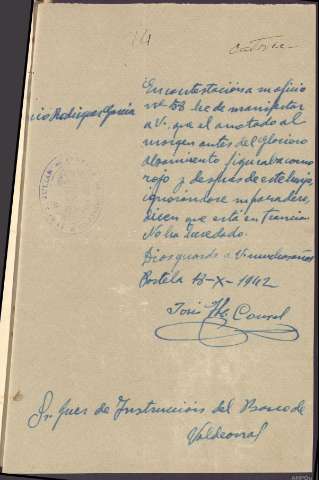 14
catorce
En contestación a su oficio
nº 58 he de manifestar
a V. que el anotado al
margen antes del Glorioso
Alzamiento figuraba como
rojo y despues de este huyó,
ignorándose su paradero,
dicen que está en Francia
No ha quedado.
Rodriguez Garcia
Dios guarde a V. muchos años
Portela 13-X-1942
José
Sr Juez de Instrucción del Barco de
Valdeorras